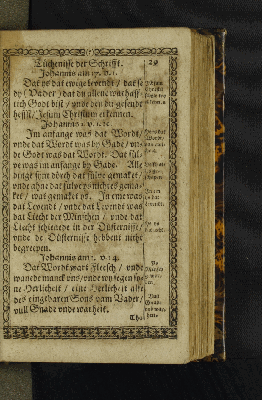 Tüchenisse der Schrifft. 29
Johannis am 17. v. 1.
Dat ys dat ewige levendt / dat se
dy / Vader / dat du allene warhaff-
tich Godt bist / unde den du gesendt
heffst / Jesum Christum erkennen.
Johannis 1. v. 1. &c.
Im anfange was dat Wordt /
unde dat Wordt was by Gade / un-
de Godt was dat Wordt. Dat sül-
ve was im anfange by Gade. Alle
dinge sint dörch dat sülve gemaket /
unde ahne dat sülve ys nichts gema-
ket / wat gemaket ys. In eme was
dat Levendt / unde dat Levendt was
dat Liecht der Minschen / unde dat
Liecht schienede in der Düsternisse /
unde de Düsternisse hebbent nicht
begrepen.
Johannis am 1. v. 14.
Dat Wordt wart Fleesch / unde
wanede manck uns / unde wy segen sy-
ne Herlicheit / eine Herlicheit alse
des eingebaren Söns vam Vader /
vull Gnade unde warheit.